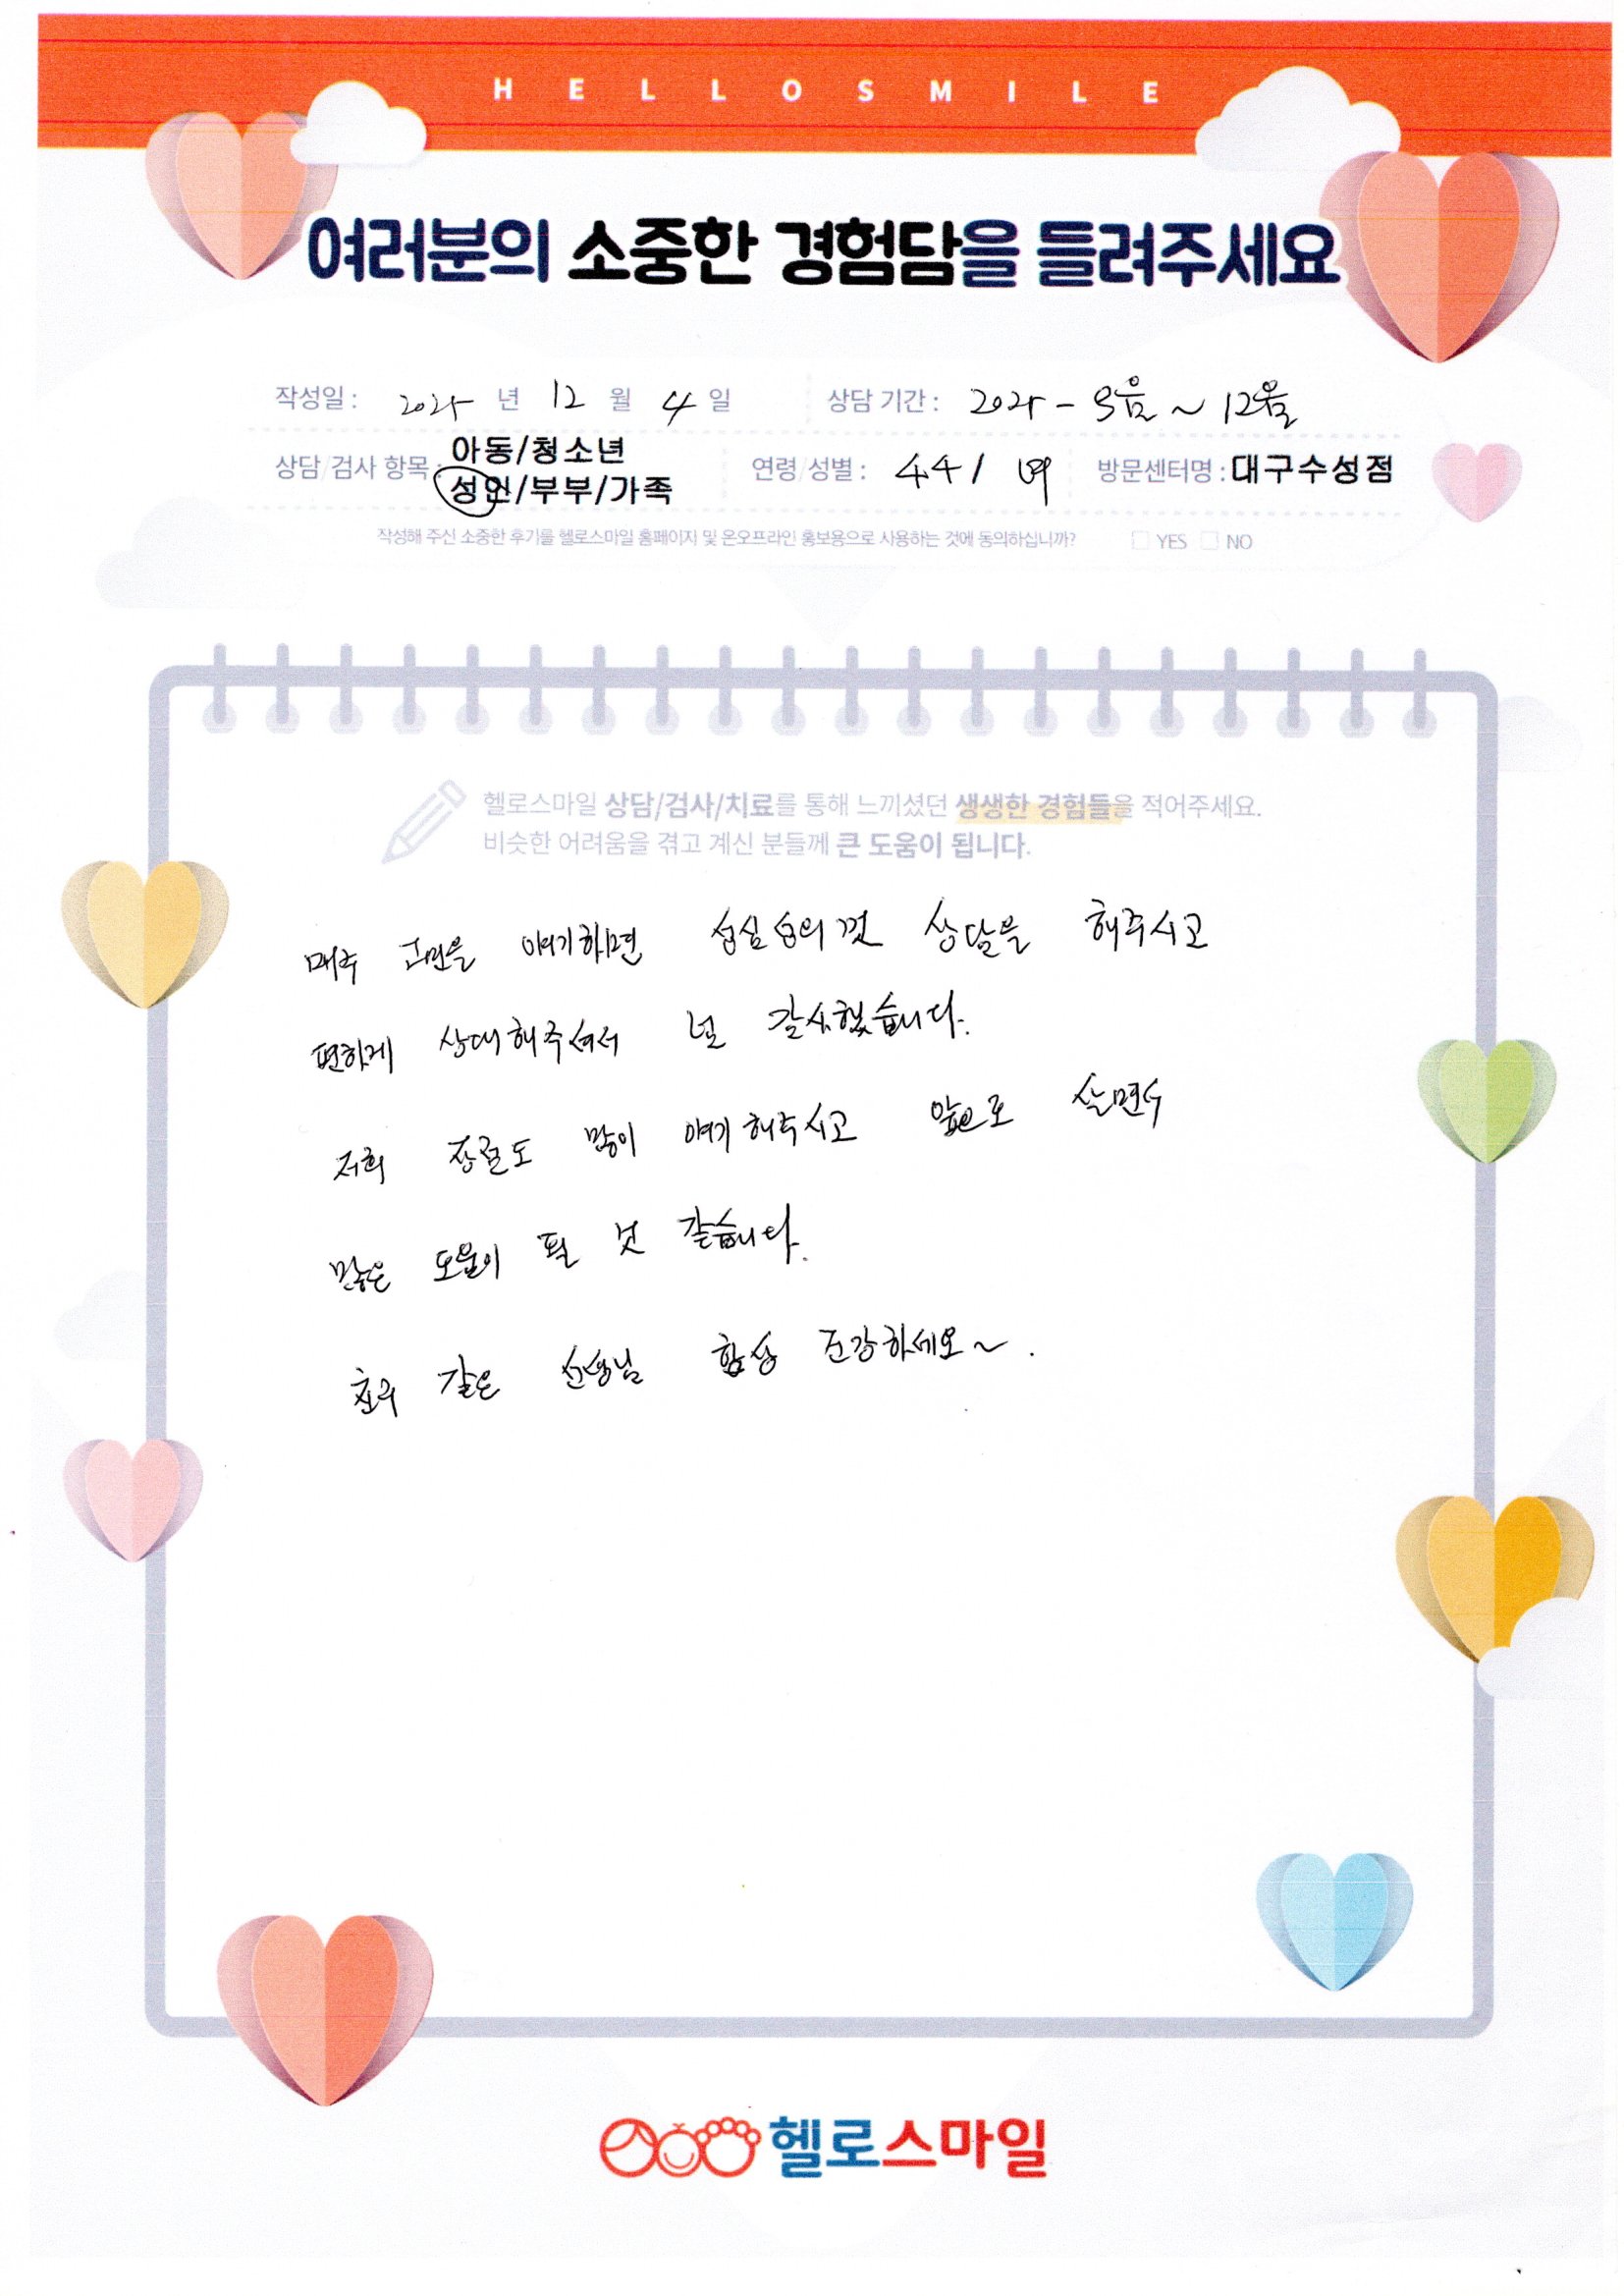 HELLOSMILE
여러분의 소중한 경험담을 들려주세요
작성일 : 2025 년 12 월 4 일 상담 기간 : 2025 - 9월 ~ 12월
상담/검사 항목 : 아동/청소년
성인/부부/가족
연령/성별 : 44 / 여 방문센터명 : 대구수성점
작성해 주신 소중한 후기를 헬로스마일 홈페이지 및 온오프라인 홍보용으로 사용하는 것에 동의하십니까? YES NO
헬로스마일 상담/검사/치료를 통해 느끼셨던 생생한 경험들을 적어주세요.
비슷한 어려움을 겪고 계신 분들께 큰 도움이 됩니다.
매주 고민을 얘기하면 성심성의껏 상담을 해주시고
편하게 상대해주셔서 넘 감사했습니다.
저희 장점도 많이 얘기해주시고 앞으로 살면서
많은 도움이 될 것 같습니다.
친구 같은 선생님 항상 건강하세요~.
헬로스마일